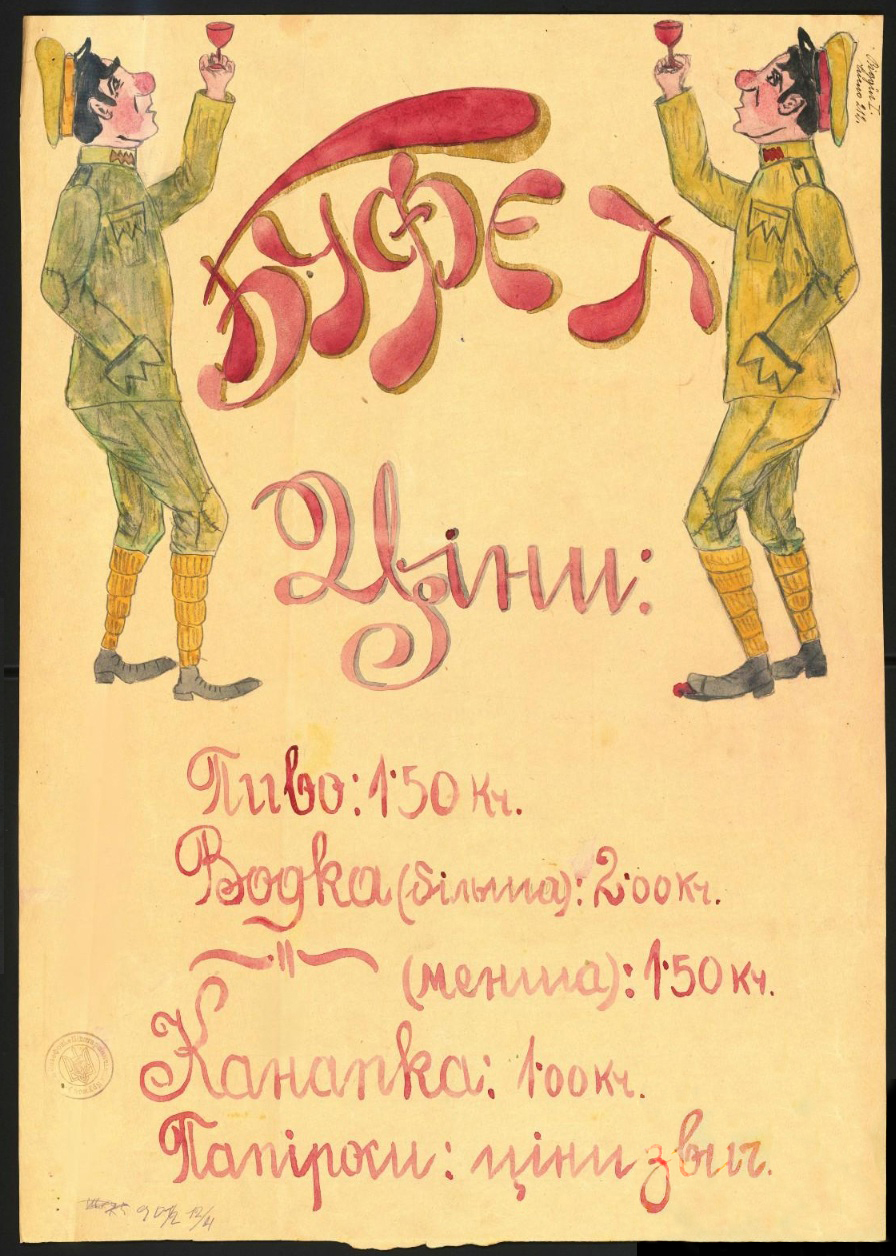 БУФЕТ
Ціни:
Пиво: 1·50 Кч.
Водка (більша): 2·00 Кч.
〃 (менша): 1·50 Кч.
Канапка: 1·00 Кч.
Папіроси: ціни звич.